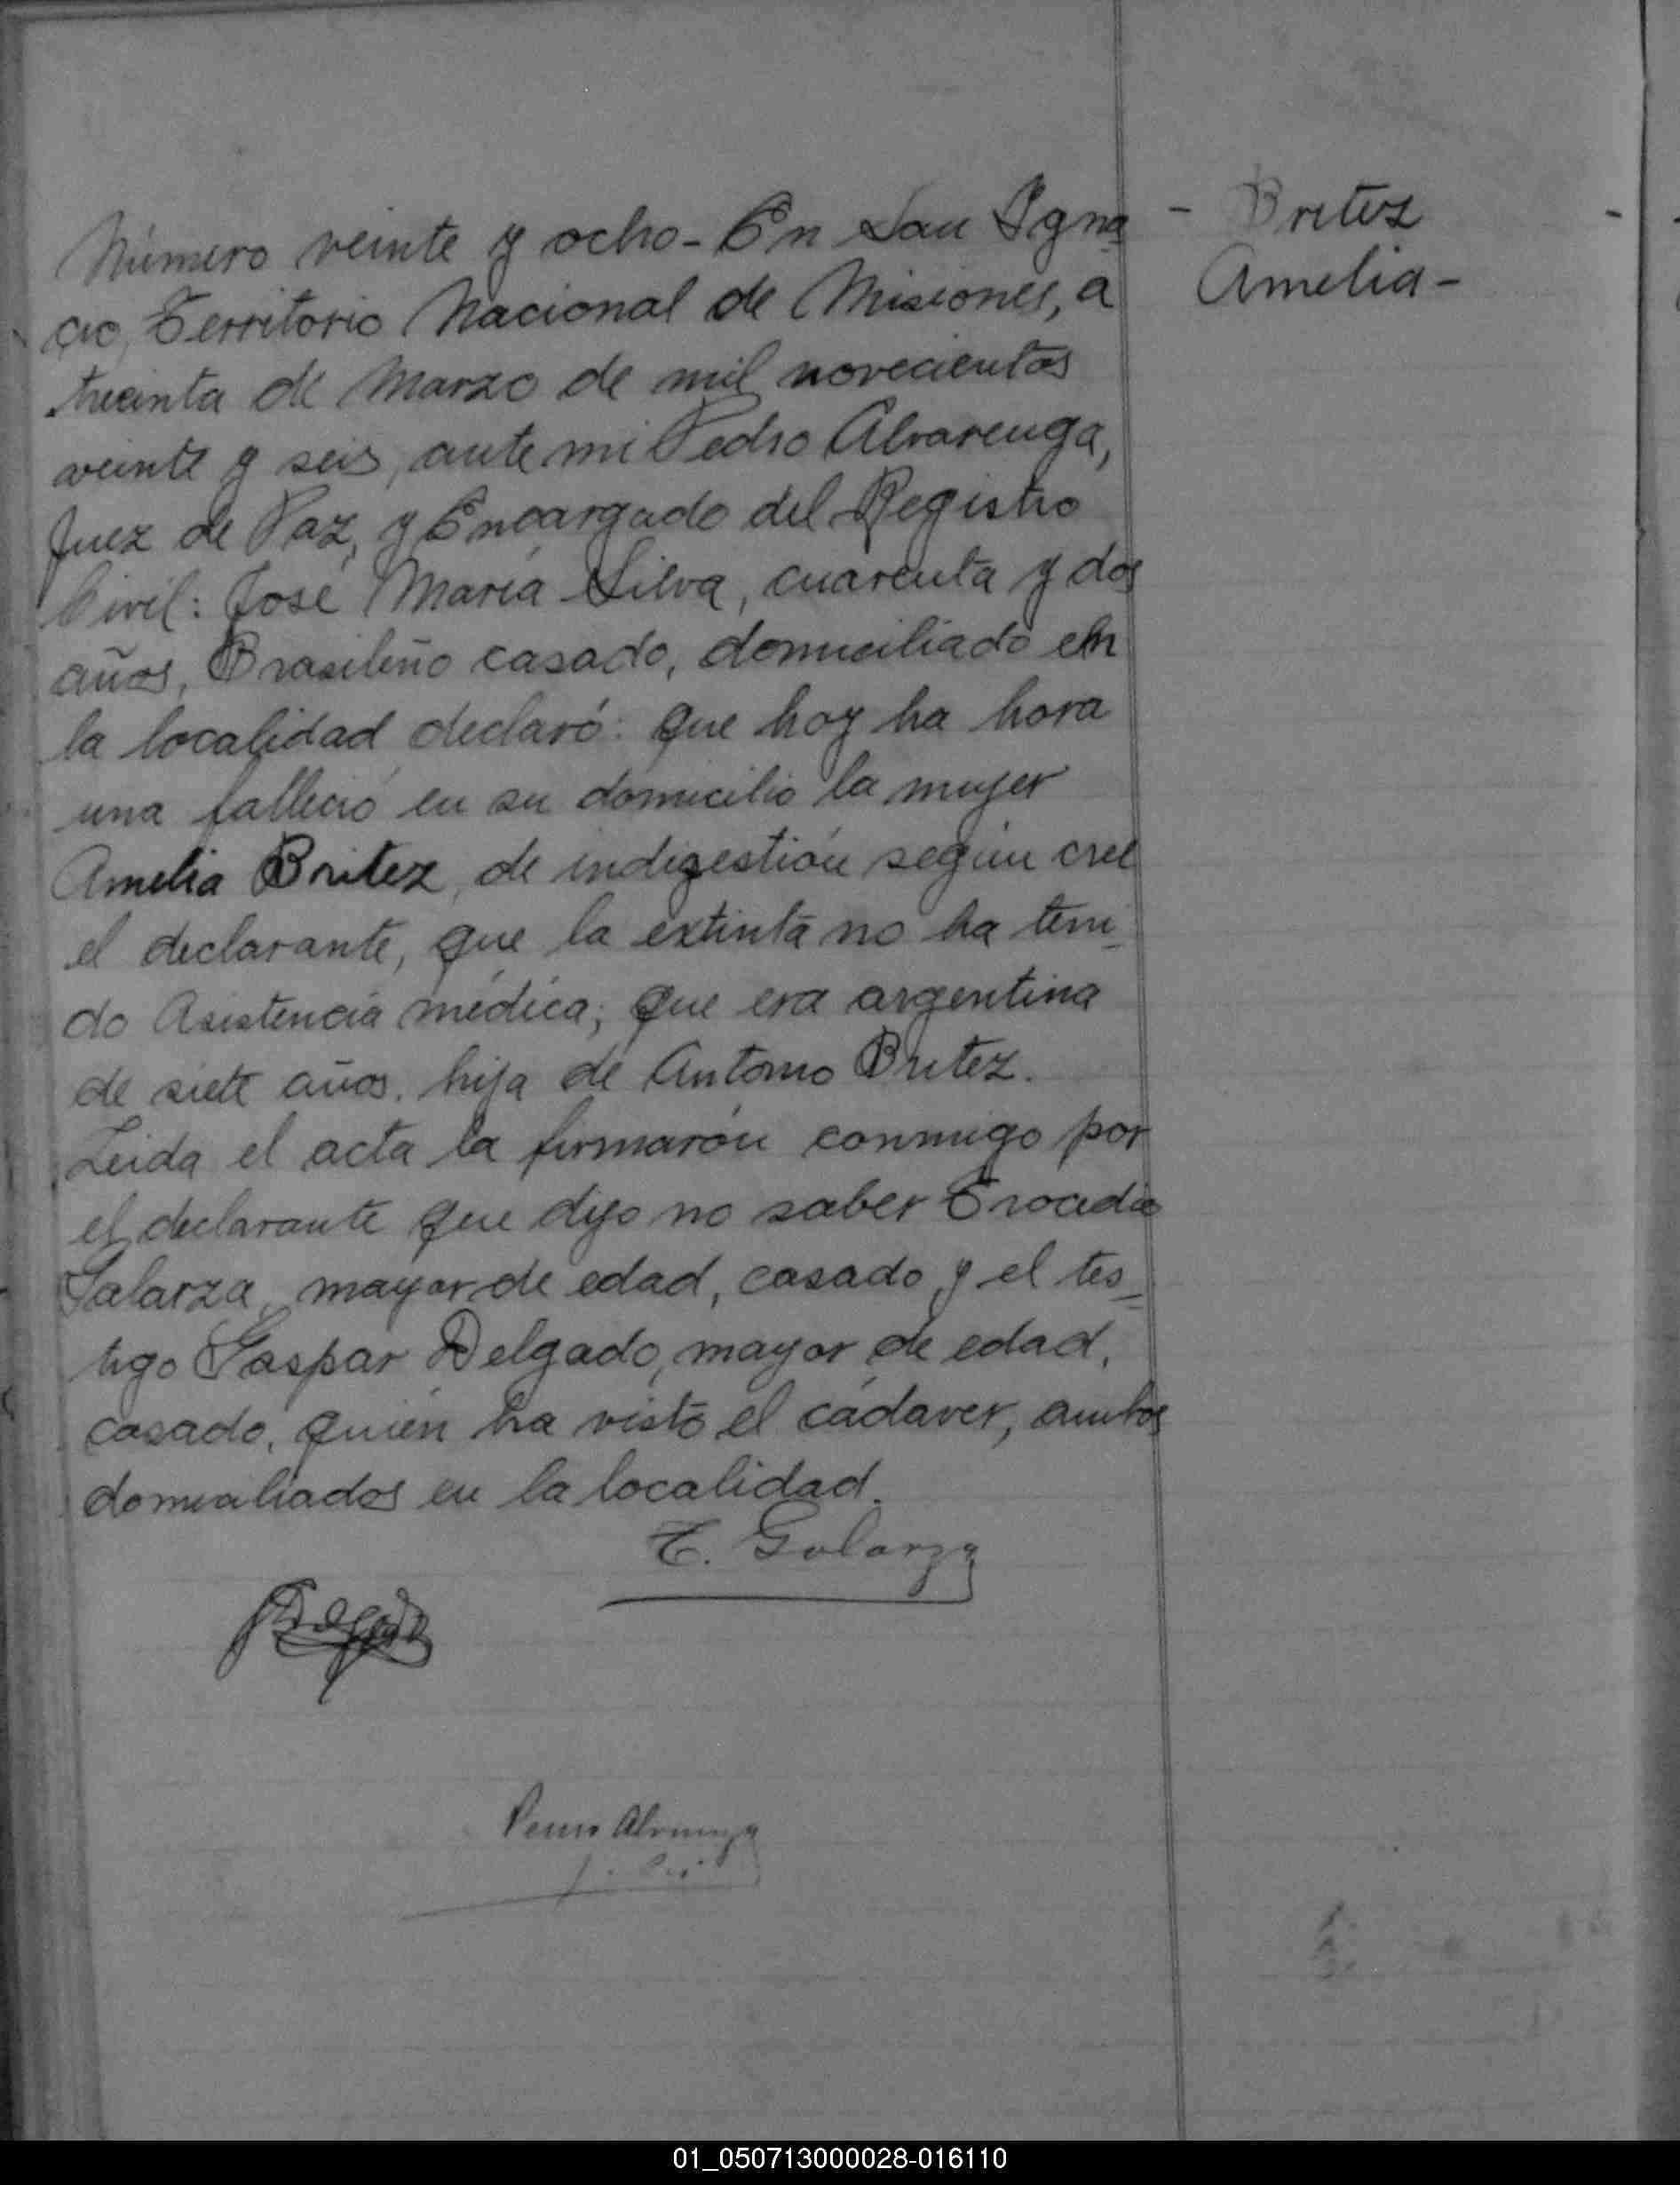 Britez
Amelia-
Número veinte y ocho- En San Igna
cio, Territorio Nacional de Misiones, a
treinta de Marzo de mil novecientos
veinte y seis, ante mi Pedro Alvarenga,
Juez de Paz, y Encargado del Registro
Civil: José María Silva, cuarenta y dos
años, Brasileño casado, domiciliado en
la localidad declaró: que hoy ha hora
una falleció en su domicilio la mujer
Amelia Britez, de indigestión según cree
el declarante, que la extinta no ha teni_
do Asistencia médica; que era argentina
de siete años. hija de Antonio Britez.
Leida el acta la firmarón conmigo por
el declarante que dijo no saber
Galarza, mayor de edad, casado y el tes_
tigo Gaspar Delgado, mayor de edad,
casado, quién ha visto el cádaver, ambos
domiciliados en la localidad.
E. Galarza
Pedro Alvarenga
01_050713000028-016110